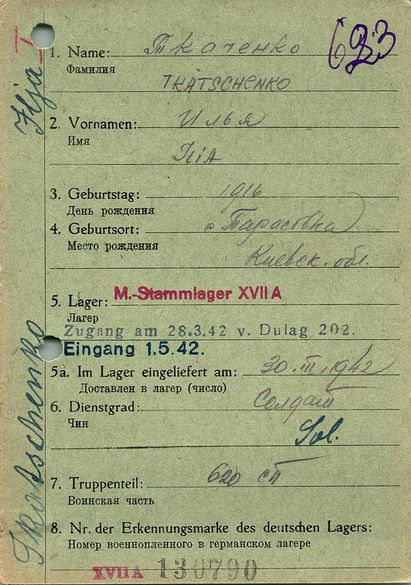 693
1. Name: Ткаченко
Фамилия
TKATSCHENKO
2. Vornamen: Илья
Имя
3. Geburtstag: 1916
День рождения
4. Geburtsort: с Тарасовка
Место рождения
Киевск. обл.
5. Lager: M.-Stammlager XVII A
Лагер
Zugang am 28.3.42 v. Dulag 202.
Eingang 1.5.42.
5a. Im Lager eingeliefert am: 30. III. 1942
Доставлен в лагер (число)
6. Dienstgrad: Солдат
Чин
Sol.
7. Truppenteil: 620 сп
Воинская часть
8. Nr. der Erkennungsmarke des deutschen Lagers:
Номер военнопленного в германском лагере
XVII A 130790
Tkatschenko Ilja